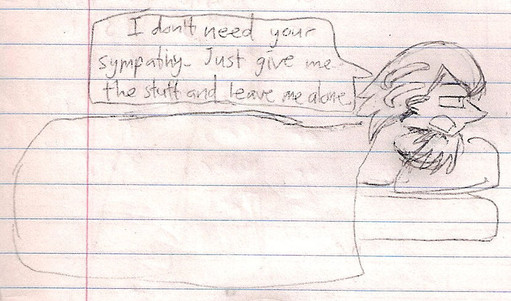 I don't need your
sympathy. Just give me
the stuff and leave me alone.